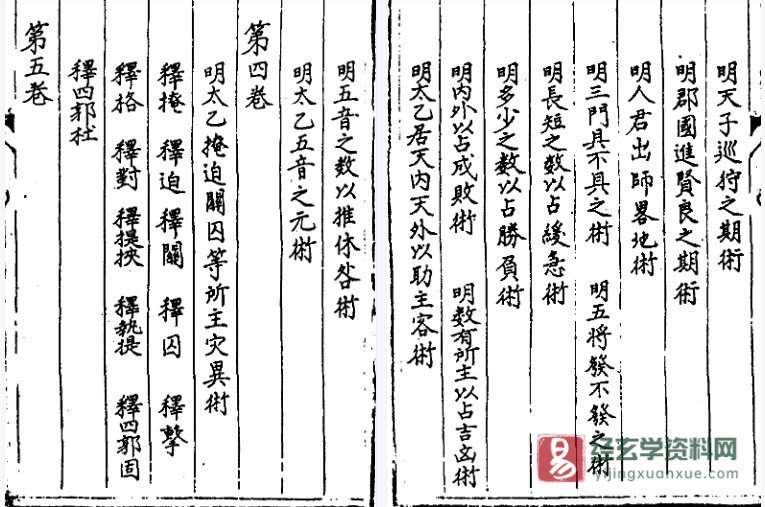 明天子巡狩之期術
明郡國進賢良之期術
明人君出師畧地術
明三門具不具之術 明五将發不發之術
明長短之数以占緩急術
明多少之数以占勝負術
明内外以占成敗術 明数有所主以占吉凶術
明太乙居天内天外以助主客術
明五音之数以推休咎術
明太乙五音之元術
第四卷
明太乙掩迫關囚等所主灾異術
釋掩 釋迫 釋關 釋囚 釋擊
釋格 釋對 釋提挾 釋執提 釋四郭固
釋四郭杜
第五卷
易
经玄学资料网
yijingxuanxue.com